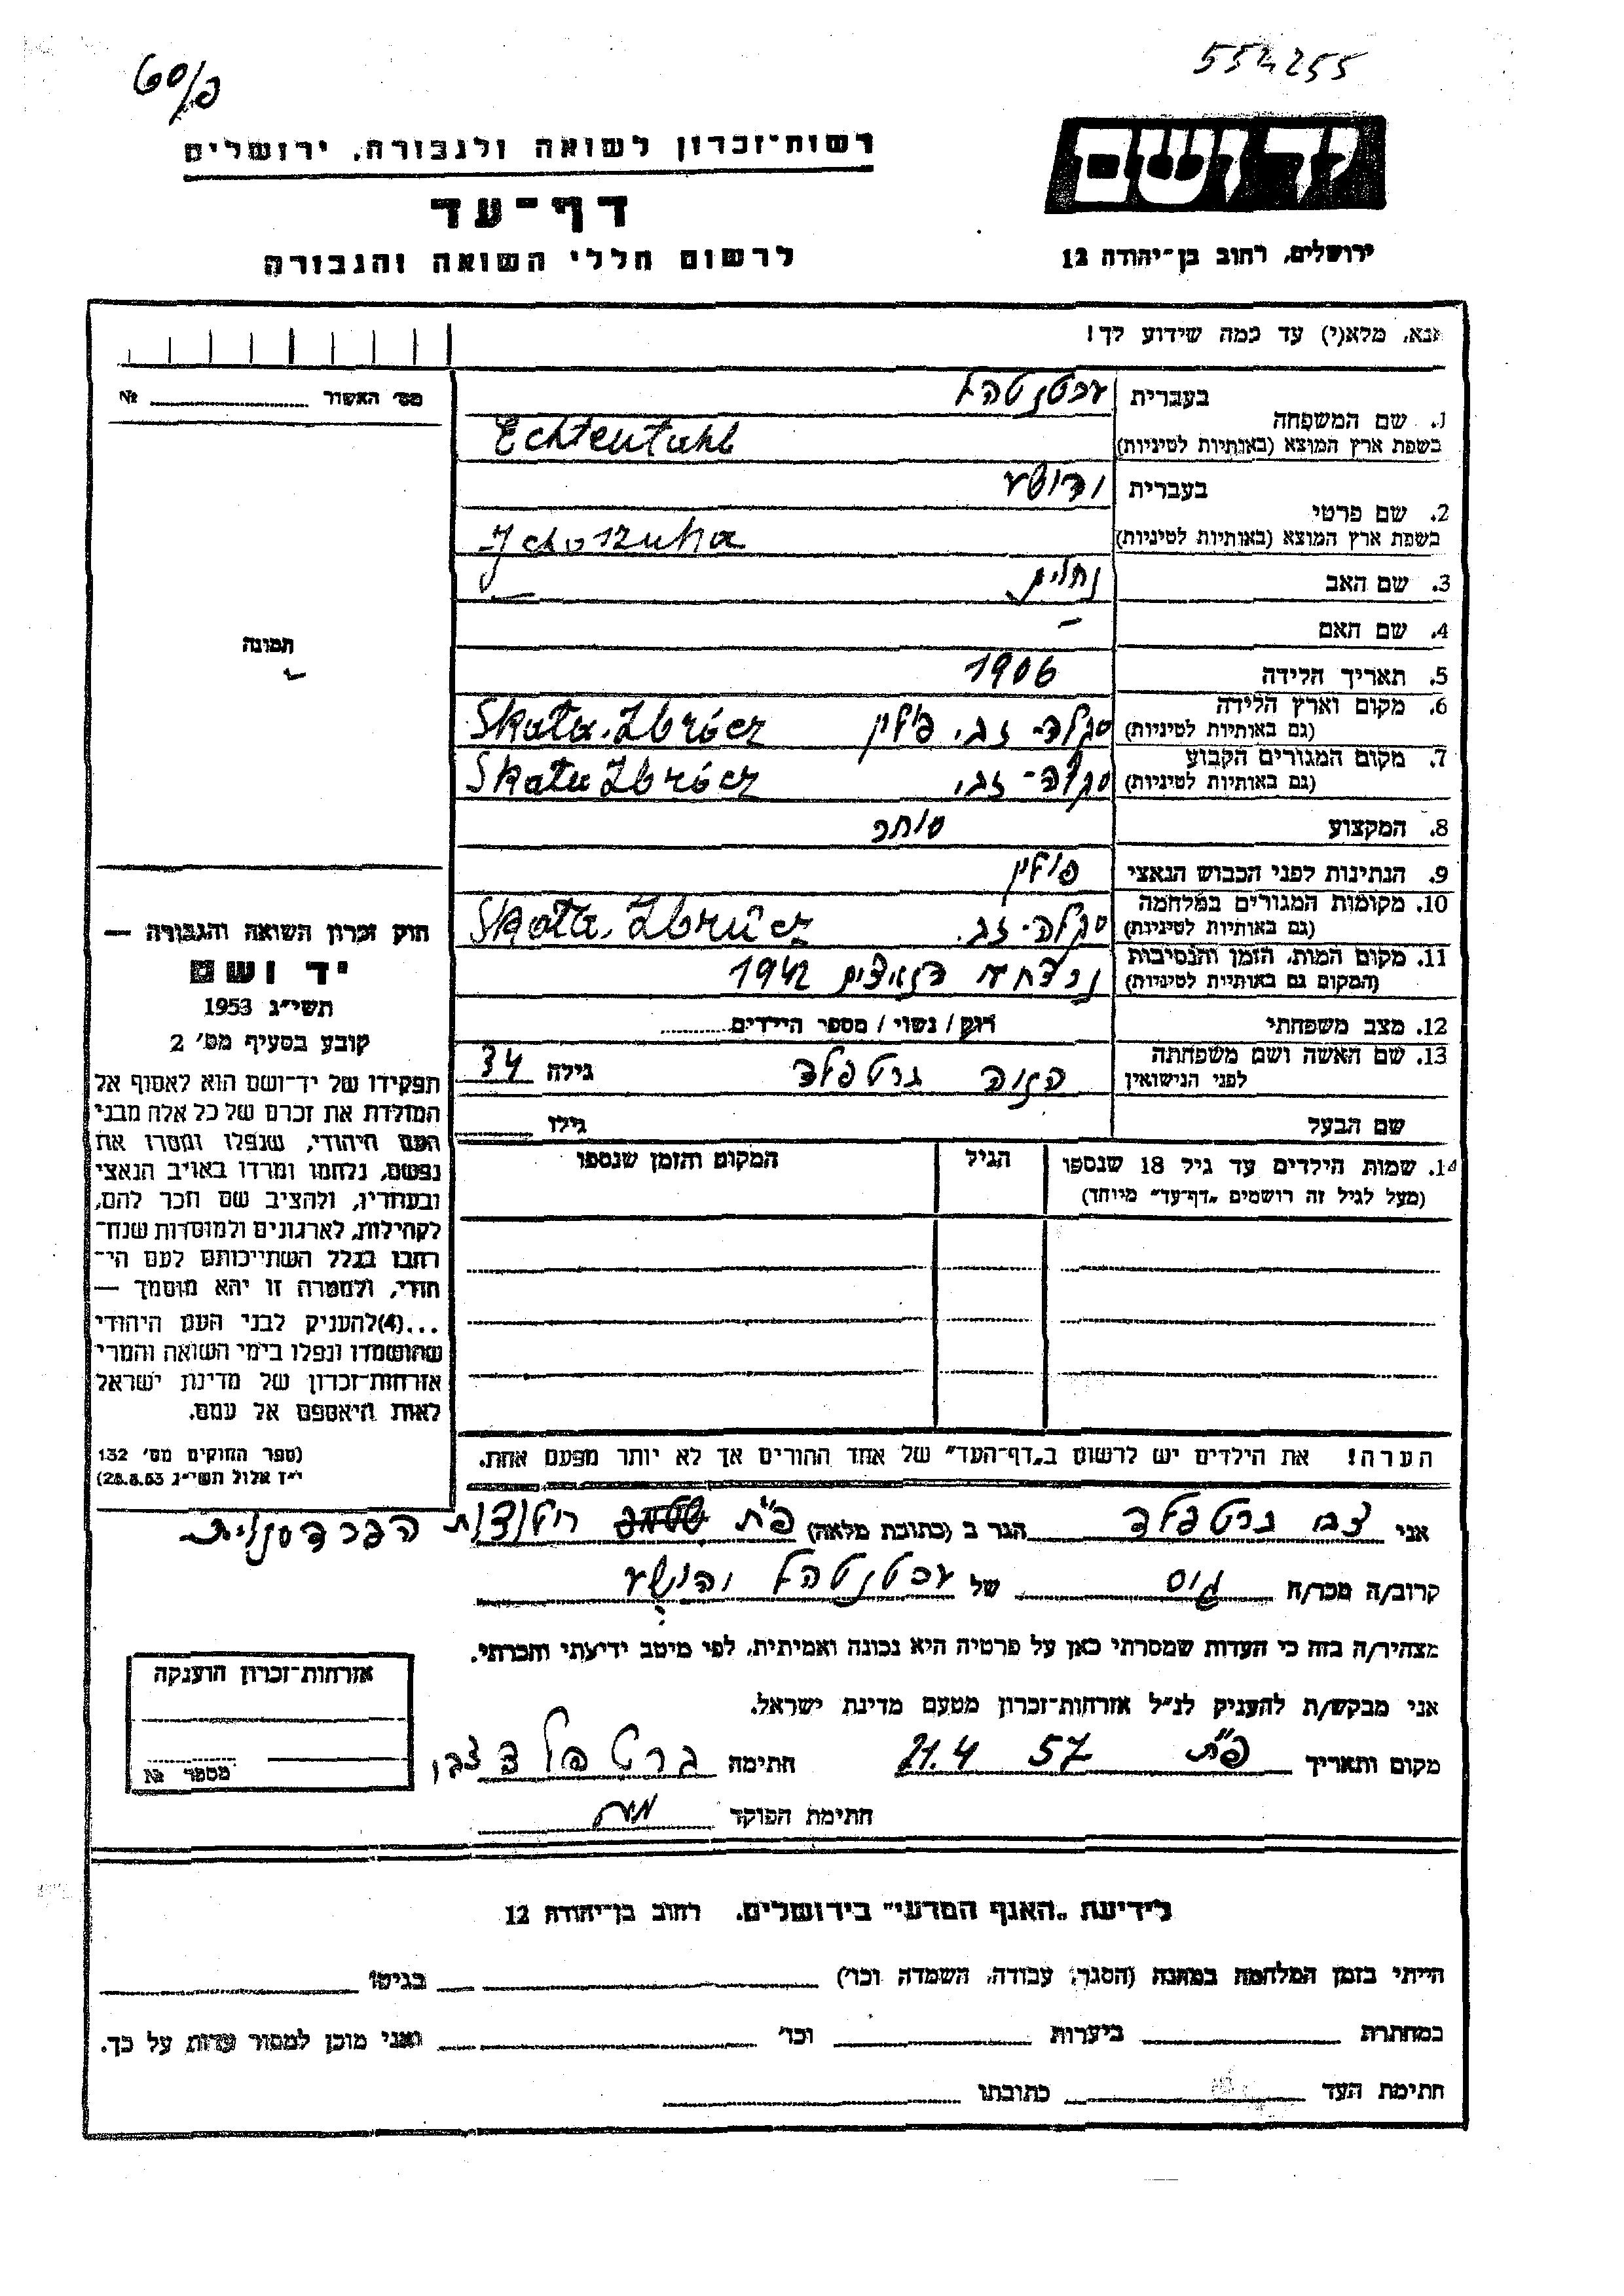 60/פ
554255
רשות-זכרון לשואה ולגבורה, ירושלים
יד ושם
דף-עד
לרשום חללי השואה והגבורה
ירושלים, רחוב בן-יהודה 12
אנא, מלא(י) עד כמה שידוע לך!
מס' האשור № 
בעברית עכטנטהל
1. שם המשפחה
בשפת ארץ המוצא (באותיות לטיניות) Echtentuhl
בעברית יהושע
2. שם פרטי
בשפת ארץ המוצא (באותיות לטיניות) Jehoszuha
3. שם האב נחום
4. שם האם –
תמונה
5. תאריך הלידה 1906
6. מקום וארץ הלידה
(גם באותיות לטיניות) סקלה-זב. פולין Skata. Zbrócz
7. מקום המגורים הקבוע
(גם באותיות לטיניות) סקלה-זב. Skata Zbrócz
8. המקצוע סוחר
9. הנתינות לפני הכבוש הנאצי פולין
10. מקומות המגורים במלחמה
(גם באותיות לטיניות) סקלה-זב. Skata. Zbrucz
11. מקום המות, הזמן והנסיבות
(המקום גם באותיות לטיניות) נרצח ע הנאצים 1942
12. מצב משפחתי רוק / נשוי / מספר הילדים
13. שם האשה ושם משפחתה
לפני הנישואין גרטפלד גילה 34
שם הבעל גילו
14. שמות הילדים עד גיל 18 שנספו הגיל המקום והזמן שנספו
(מעל לגיל זה רושמים "דף-עד" מיוחד)
הערה! את הילדים יש לרשום ב"דף-העד" של אחד ההורים אך לא יותר מפעם אחת.
חוק זכרון השואה והגבורה —
יד ושם
תשי"ג 1953
קובע בסעיף מס' 2
תפקידו של יד-ושם הוא לאסוף אל
המולדת את זכרם של כל אלה מבני
העם היהודי, שנפלו ומסרו את
נפשם, נלחמו ומרדו באויב הנאצי
ובעוזריו, ולהציב שם וזכר להם,
לקהילות, לארגונים ולמוסדות שנח-
רבו בגלל השתייכותם לעם הי-
הודי, ולמטרה זו יהא מוסמך —
...(4) להעניק לבני העם היהודי
שהושמדו ונפלו בימי השואה והמרי
אזרחות-זכרון של מדינת ישראל
לאות היאספם אל עמם.
(ספר החוקים מס' 132
י"ז אלול תשי"ג 28.8.53)
אני צבי גרטפלד הגר ב (כתובת מלאה) פ"ת
קרוב/ה מכר/ה גיס של עכטנטהל יהושע
מצהיר/ה בזה כי העדות שמסרתי כאן על פרטיה היא נכונה ואמיתית, לפי מיטב ידיעתי והכרתי.
אני מבקש/ת להעניק לנ"ל אזרחות-זכרון מטעם מדינת ישראל.
מקום ותאריך פ"ת 21.4 57 חתימה גרטפלד צבי
חתימת הפוקד
אזרחות-זכרון הוענקה
מספר №
לידיעת "האגף המדעי" בירושלים, רחוב בן-יהודה 12
הייתי בזמן המלחמה במחנה (הסגר, עבודה, השמדה וכו') בגיטו
במחתרת ביערות וכו' ואני מוכן למסור עדות על כך.
חתימת העד כתובתו